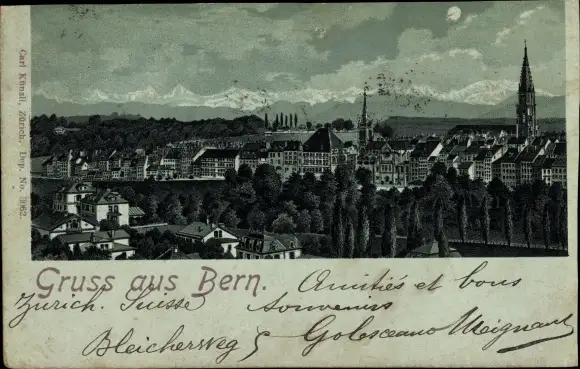 Carl Künzli, Zürich, Dep. No. 3062.
Gruss aus Bern.
Zurich. Suisse
Bleicherweg 5
Amitiés et bons
souvenirs
Golesceano Meignant